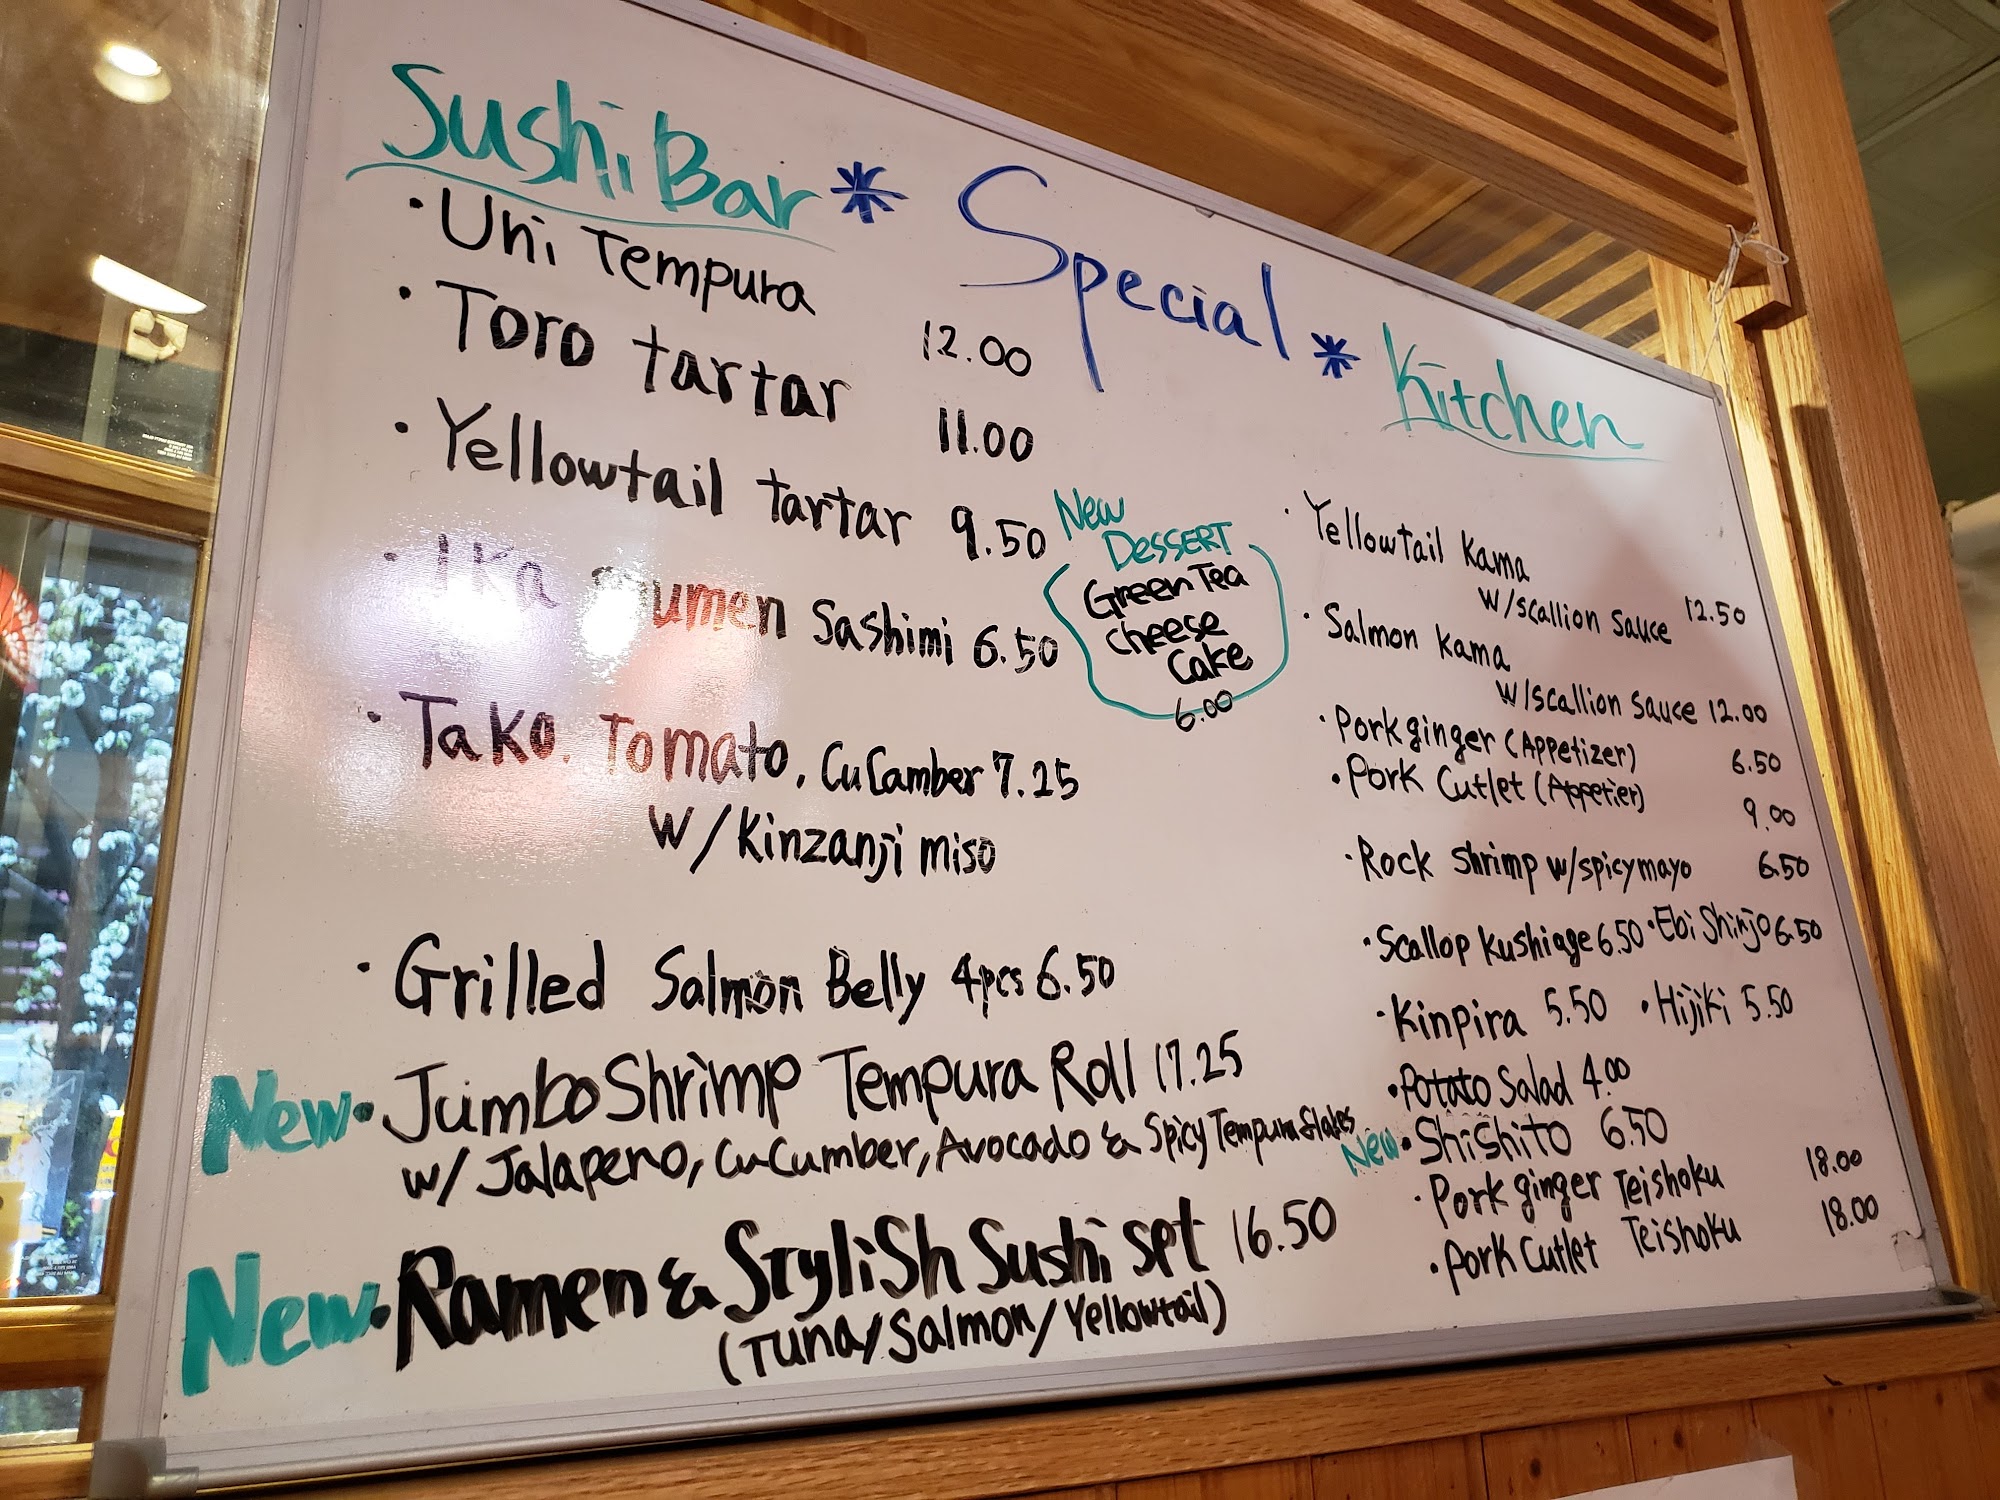 Sushi Bar * Special * Kitchen
· Uni Tempura 12.00
· Toro tartar 11.00
· Yellowtail tartar 9.50
· Ika sashimi 6.50
· Tako. Tomato, CuCamber 7.25
w/Kinzanji miso
· Grilled Salmon Belly 4pcs 6.50
New · Jumbo Shrimp Tempura Roll 17.25
w/ Jalapeno, CuCumber, Avocado & Spicy Tempura flakes
New · Ramen & StyliSh Sushi set 16.50
(Tuna/Salmon/Yellowtail)
New
DeSSERT
Green Tea
cheese
Cake
6.00
· Yellowtail Kama
w/scallion sauce 12.50
· Salmon Kama
w/scallion sauce 12.00
· Pork ginger (Appetizer) 6.50
· Pork Cutlet (Appetier) 9.00
· Rock Shrimp w/spicy mayo 6.50
· Scallop Kushiage 6.50 · Ebi Shinjo 6.50
· Kinpira 5.50 · Hijiki 5.50
· Potato Salad 4.00
New · Shishito 6.50
· Pork ginger Teishoku 18.00
· Pork Cutlet Teishoku 18.00